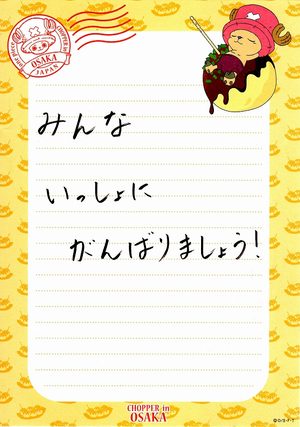 ONE PIECE
CHOPPER in
OSAKA
JAPAN
みんな
いっしょに
がんばりましょう!
CHOPPER in
OSAKA